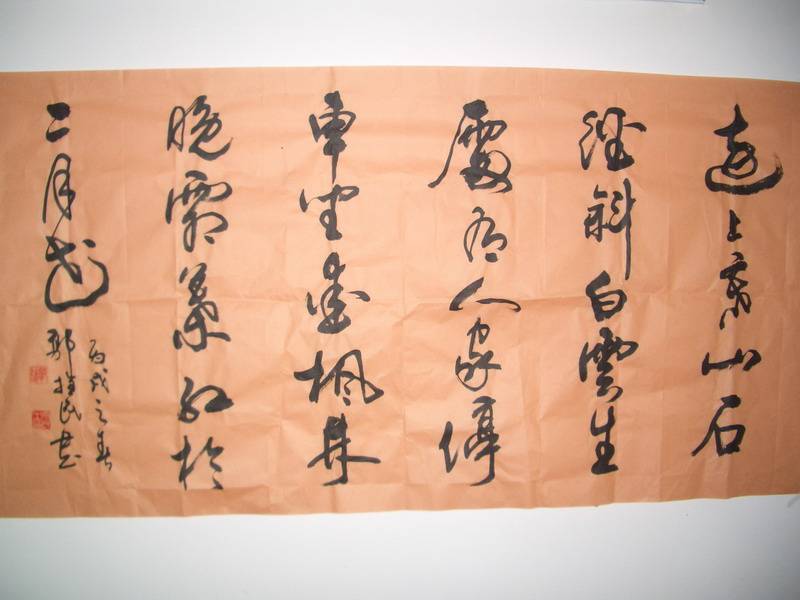 遠上寒山石
徑斜白雲生
處有人家停
車坐愛楓林
晚霜葉紅於
二月花
丙戌之春
民書